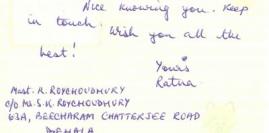 Nice knowing you. Keep
in touch. Wish you all the
best!
Yours
Ratna
Must. R. ROYCHOUDHURY
c/o Ms. S. K. ROYCHOUDHURY
63A, BEECHARAM CHATTERJEE ROAD